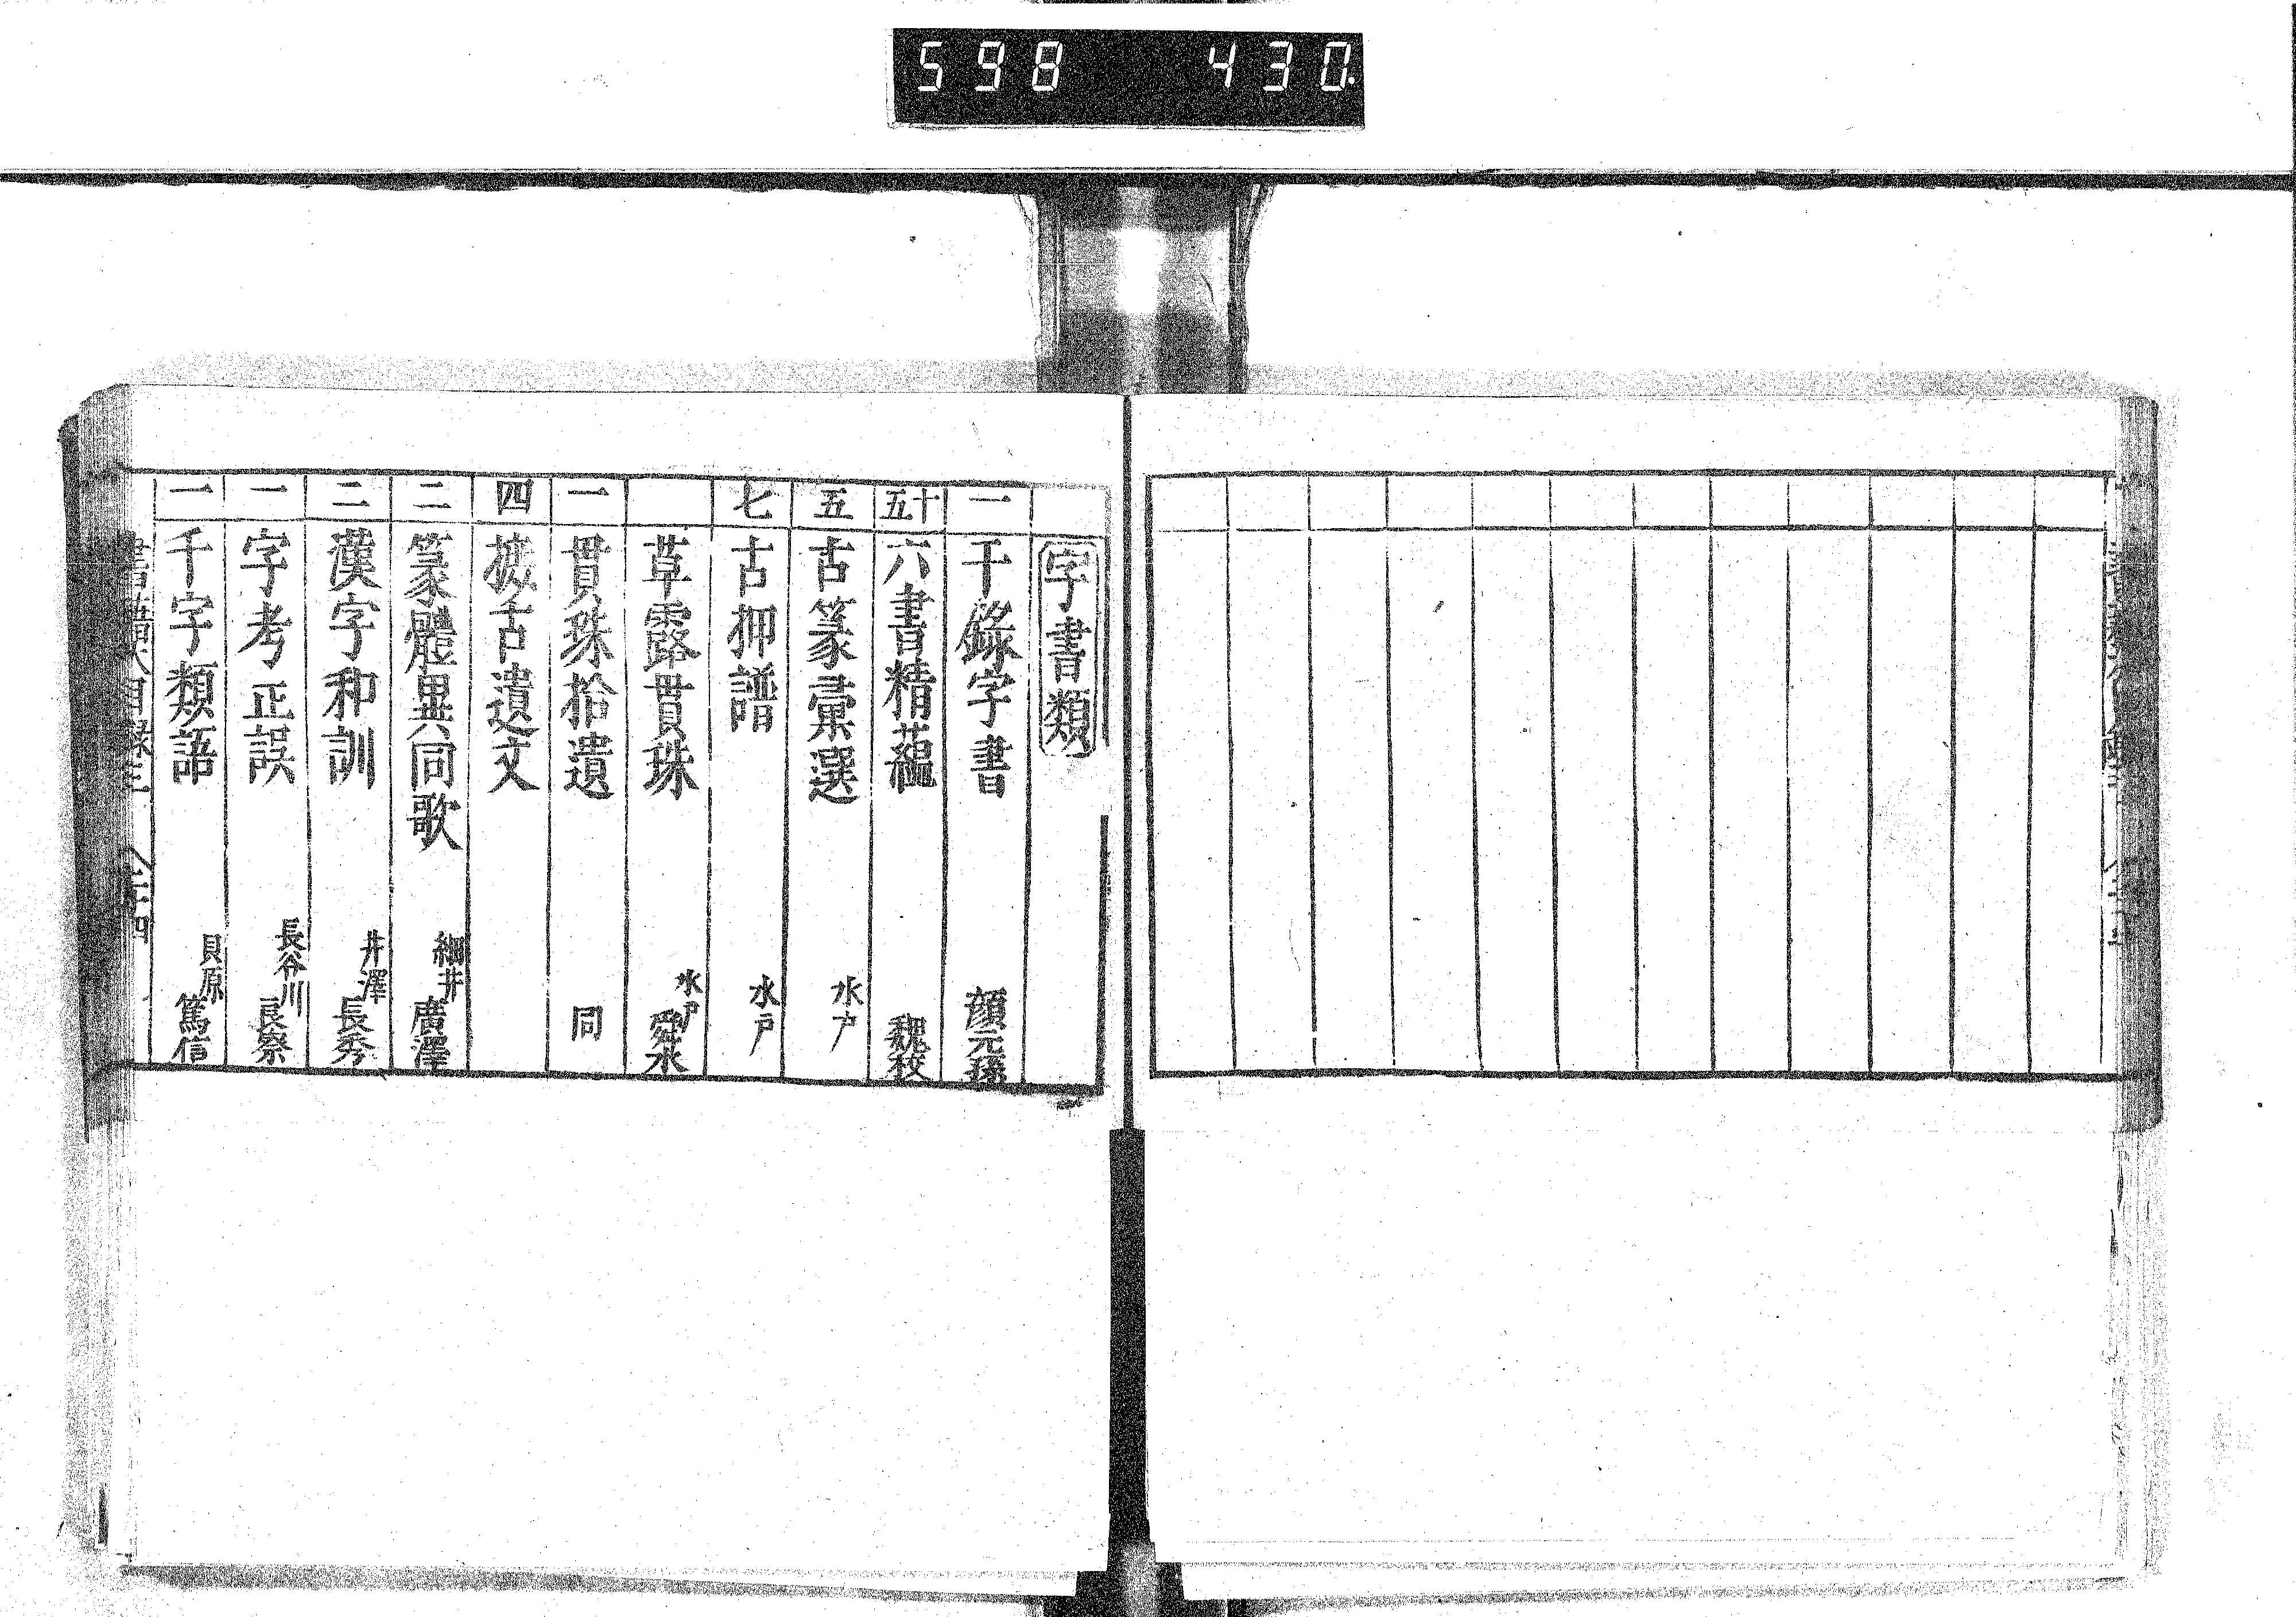 598 430.
字書類
一 千錄字書 顔元孫
十五 六書精蘊 魏校
五 古篆彙選 水戸
七 古抑譜 水戸
草露貫珠 水戸 舜水
一 貫珠拾遺 同
四 摭古遺文
二 篆體異同歌 細井 廣澤
二 漢字和訓 井澤 長秀
一 字考正誤 長谷川 良察
一 千字類語 貝原 篤信
書籍目録三